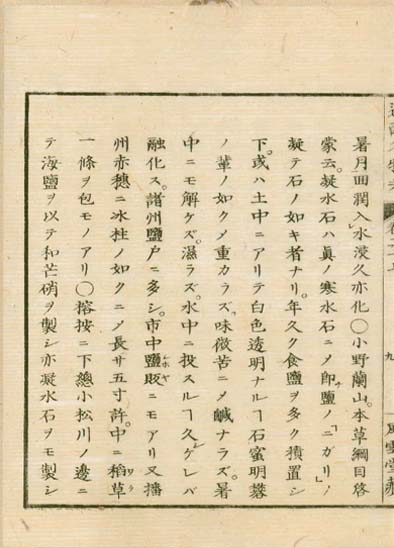 暑月回潤入水浸久亦化〇小野蘭山。本草綱目啓
蒙云。凝水石ハ眞ノ寒水石ニメ即鹽ノ「ニガリ」ノ
凝テ石ノ如キ者ナリ。年久ク食鹽ヲ多ク積置シ
下。或ハ土中ニアリテ白色透明ナルヿ石蜜明礬
ノ輩ノ如クメ重カラズ。味微苦ニメ鹹ナラズ。暑
中ニモ解ケズ。濕ラズ。水中ニ投スルヿ久ケレバ
融化ス。諸州鹽戸ニ多シ。市中鹽販ニモアリ又播
州赤穂ニ氷柱ノ如クニメ長サ五寸許。中ニ稻草
一條ヲ包モノアリ〇榕按ニ下總小松川ノ邊ニ
テ海鹽ヲ以テ和芒硝ヲ製シ亦凝水石ヲモ製シ